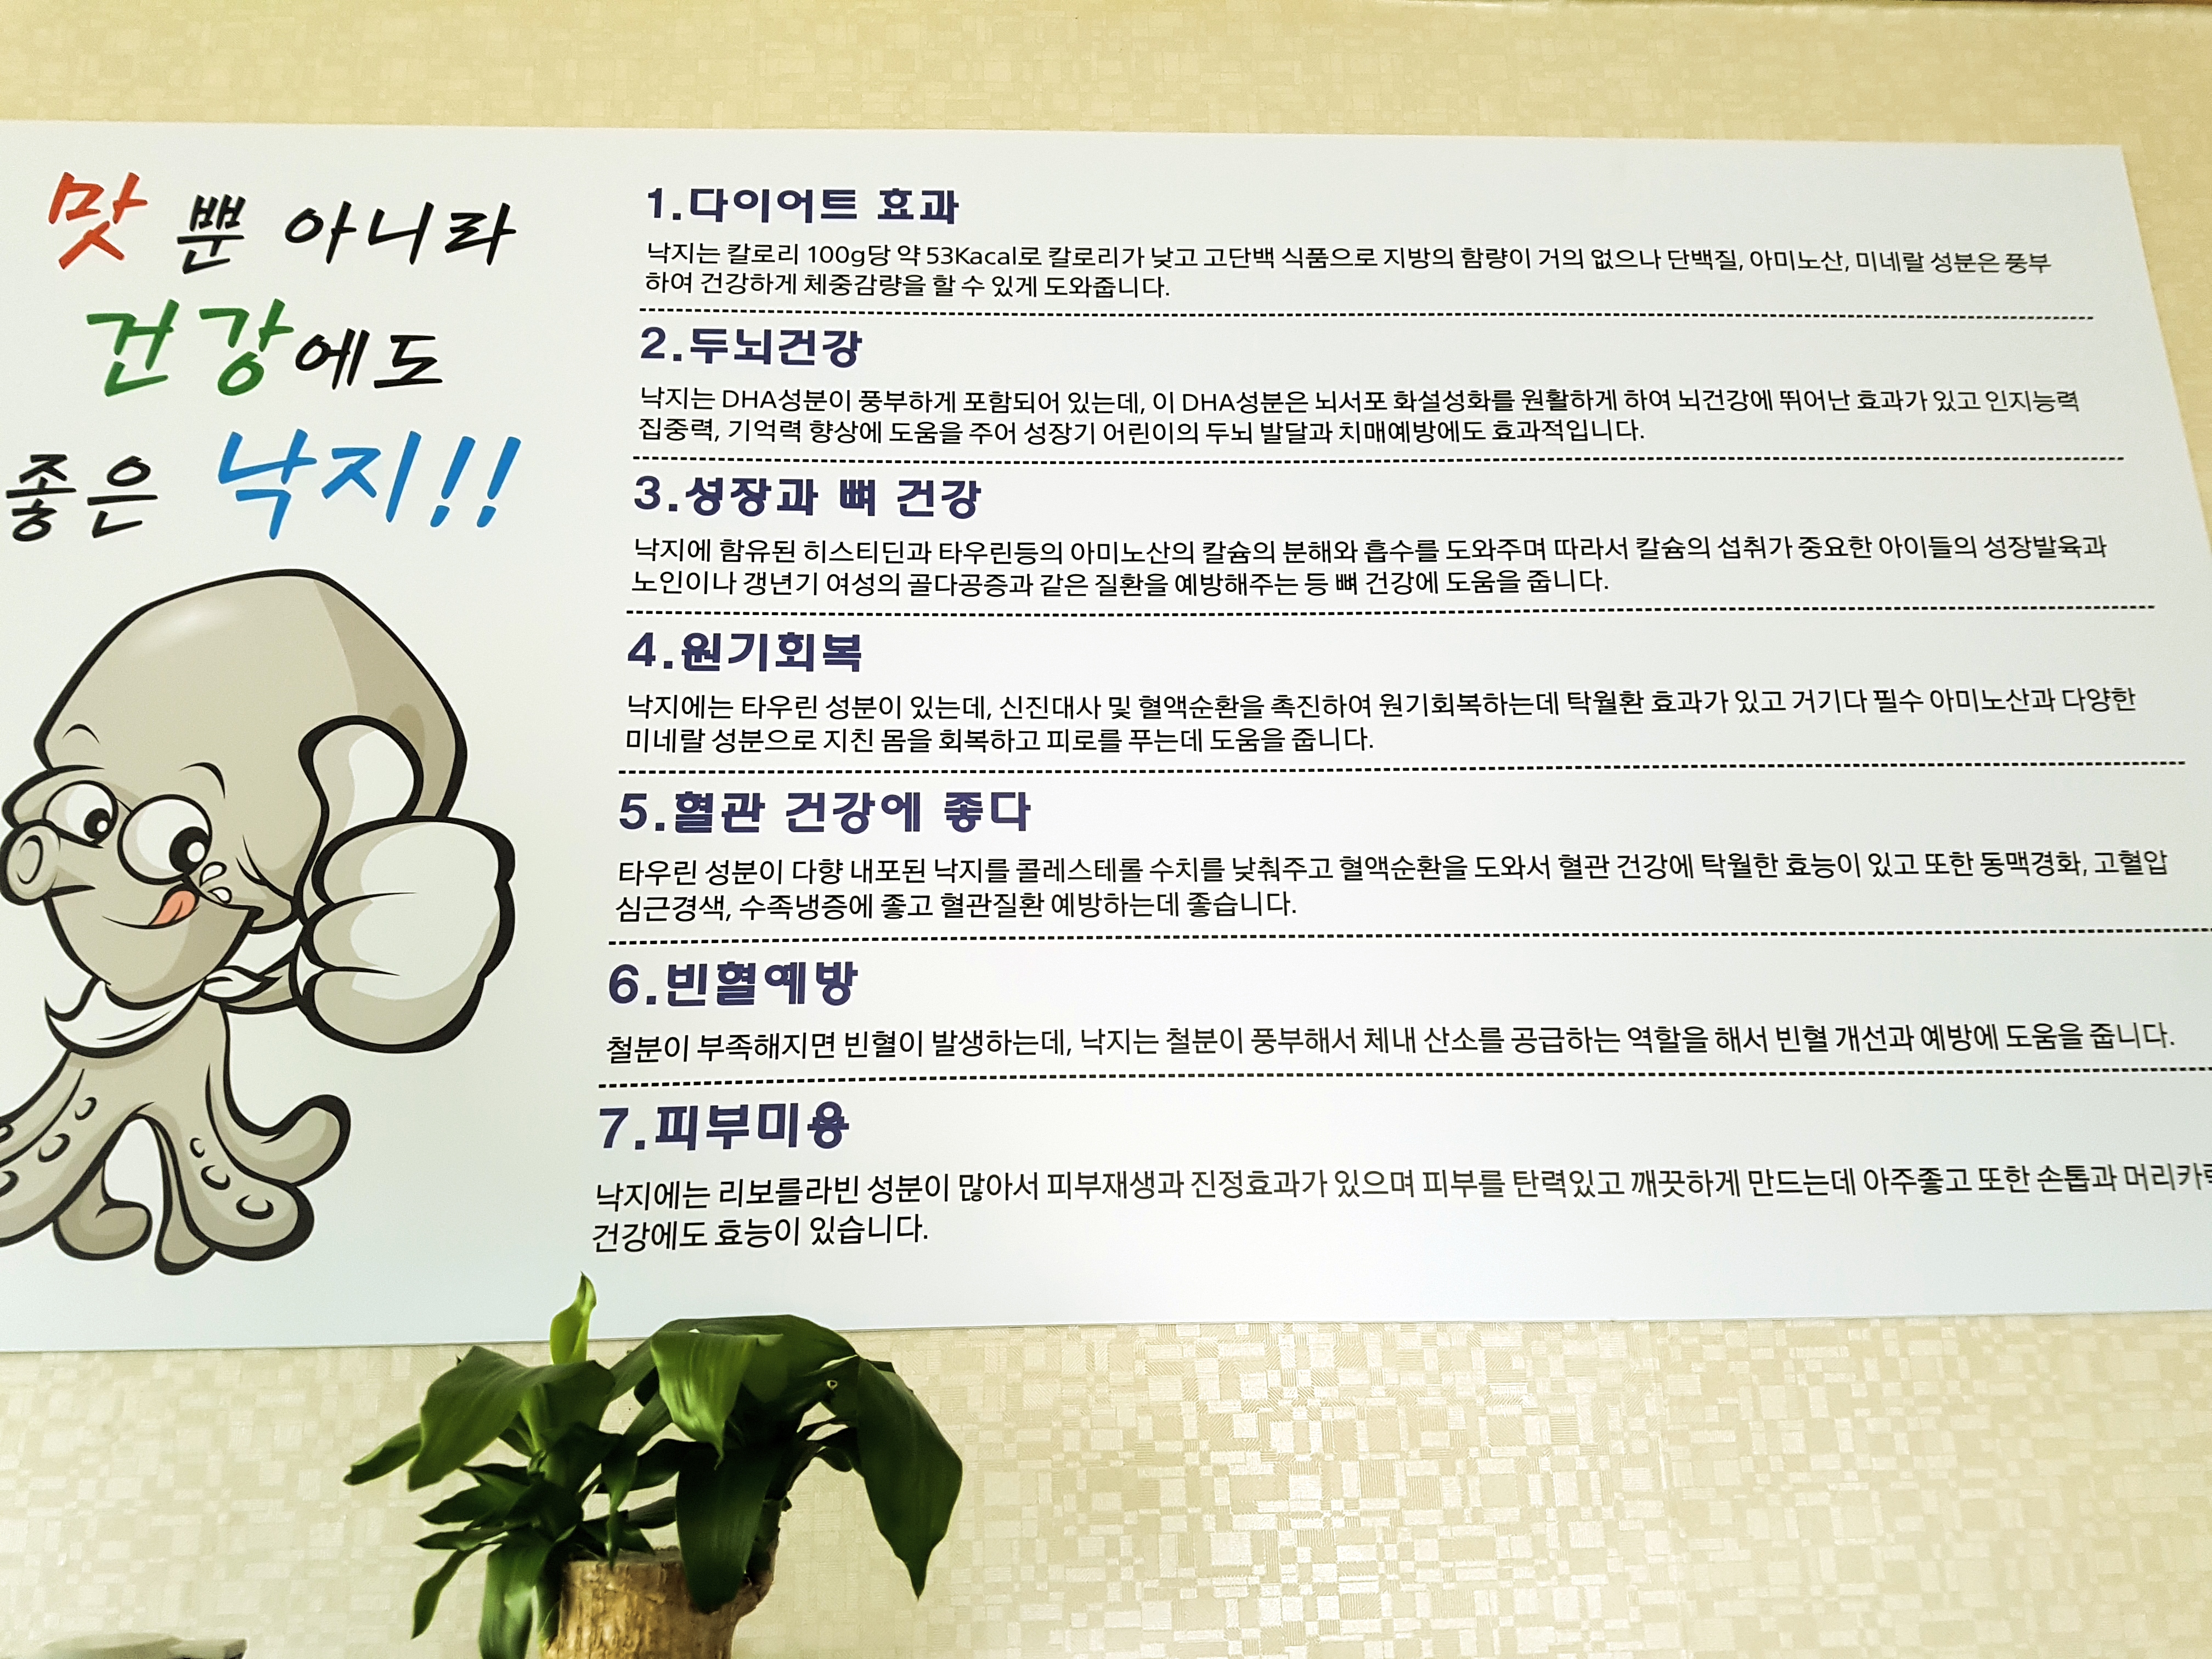 맛 뿐 아니라
건강에도
좋은 낙지!!
1.다이어트 효과
낙지는 칼로리 100g당 약 53Kacal로 칼로리가 낮고 고단백 식품으로 지방의 함량이 거의 없으나 단백질, 아미노산, 미네랄 성분은 풍부
하여 건강하게 체중감량을 할 수 있게 도와줍니다.
2.두뇌건강
낙지는 DHA성분이 풍부하게 포함되어 있는데, 이 DHA성분은 뇌서포 화설성화를 원활하게 하여 뇌건강에 뛰어난 효과가 있고 인지능력
집중력, 기억력 향상에 도움을 주어 성장기 어린이의 두뇌 발달과 치매예방에도 효과적입니다.
3.성장과 뼈 건강
낙지에 함유된 히스티딘과 타우린등의 아미노산의 칼슘의 분해와 흡수를 도와주며 따라서 칼슘의 섭취가 중요한 아이들의 성장발육과
노인이나 갱년기 여성의 골다공증과 같은 질환을 예방해주는 등 뼈 건강에 도움을 줍니다.
4.원기회복
낙지에는 타우린 성분이 있는데, 신진대사 및 혈액순환을 촉진하여 원기회복하는데 탁월환 효과가 있고 거기다 필수 아미노산과 다양한
미네랄 성분으로 지친 몸을 회복하고 피로를 푸는데 도움을 줍니다.
5.혈관 건강에 좋다
타우린 성분이 다향 내포된 낙지를 콜레스테롤 수치를 낮춰주고 혈액순환을 도와서 혈관 건강에 탁월한 효능이 있고 또한 동맥경화, 고혈압
심근경색, 수족냉증에 좋고 혈관질환 예방하는데 좋습니다.
6.빈혈예방
철분이 부족해지면 빈혈이 발생하는데, 낙지는 철분이 풍부해서 체내 산소를 공급하는 역할을 해서 빈혈 개선과 예방에 도움을 줍니다.
7.피부미용
낙지에는 리보를라빈 성분이 많아서 피부재생과 진정효과가 있으며 피부를 탄력있고 깨끗하게 만드는데 아주좋고 또한 손톱과
건강에도 효능이 있습니다.